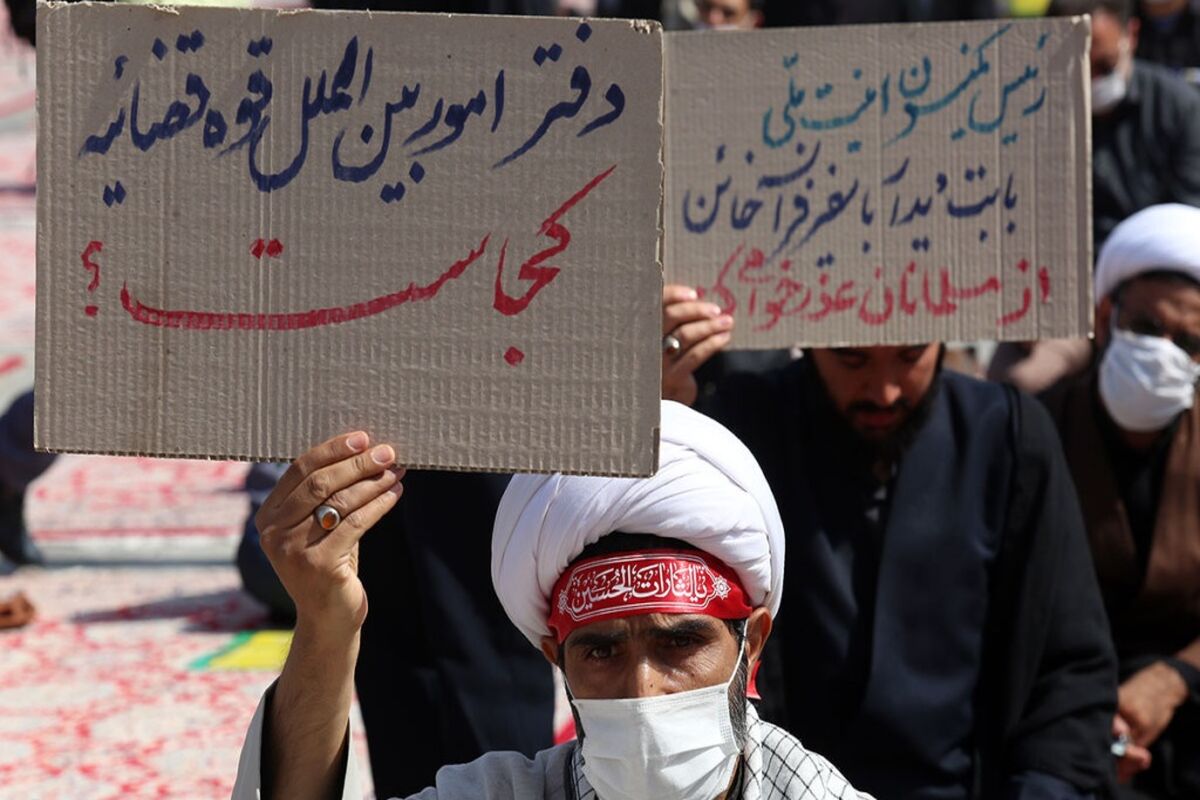 دفتر امور بین الملل قوه قضائیه
کجاست؟
رئیس کمیسیون امنیت ملّی
بابت دیدار با سفیر فرانسه خائن
از مسلمانان عذرخواهی
یالثارات الحسین